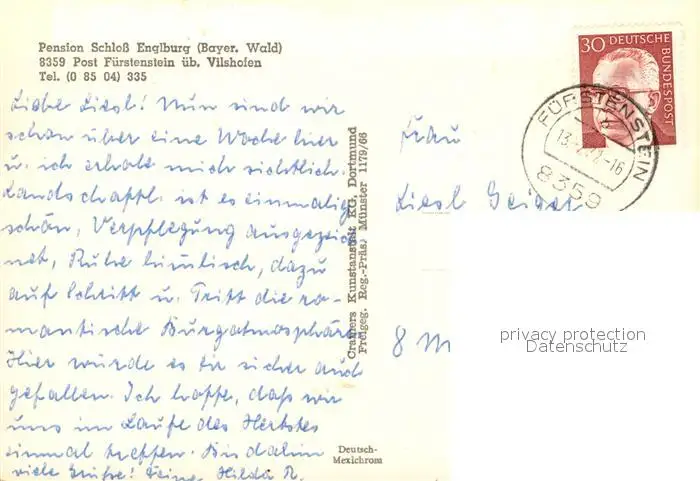 Pension Schloß Englburg (Bayer. Wald)
8359 Post Fürstenstein üb. Vilshofen
Tel. (0 85 04) 335
Liebe Liesl! Nun sind wir
schon über eine Woche hier
u. ich erhole mich sichtlich.
Landschaftl. ist es einmalig
schön, Verpflegung ausgezeich
net, Ruhe himmlisch, dazu
auf Schritt u. Tritt die ro-
mantische Burgatmosphäre
Hier würde es dir sicher auch
gefallen. Ich hoffe, daß wir
uns im Laufe des Herbstes
einmal treffen. Bis dahin
viele Grüße! Deine Hilda R.
Cramers Kunstanstalt KG, Dortmund
Freigeg. Reg.-Präs. Münster 1179/66
Deutsch-
Mexichrom
30 DEUTSCHE
BUNDESPOST
FÜRSTENSTEIN
b
-16
8359
Frau
Liesl Geiger
8 M
privacy protection
Datenschutz